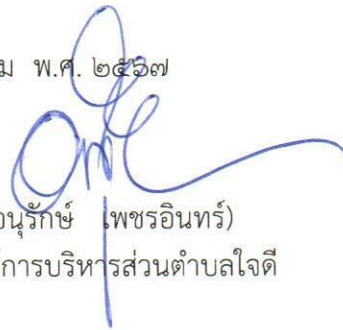 ม พ.ศ. ๒๕๖๗
อนุรักษ์ เพชรอินทร์)
การบริหารส่วนตำบลใจดี